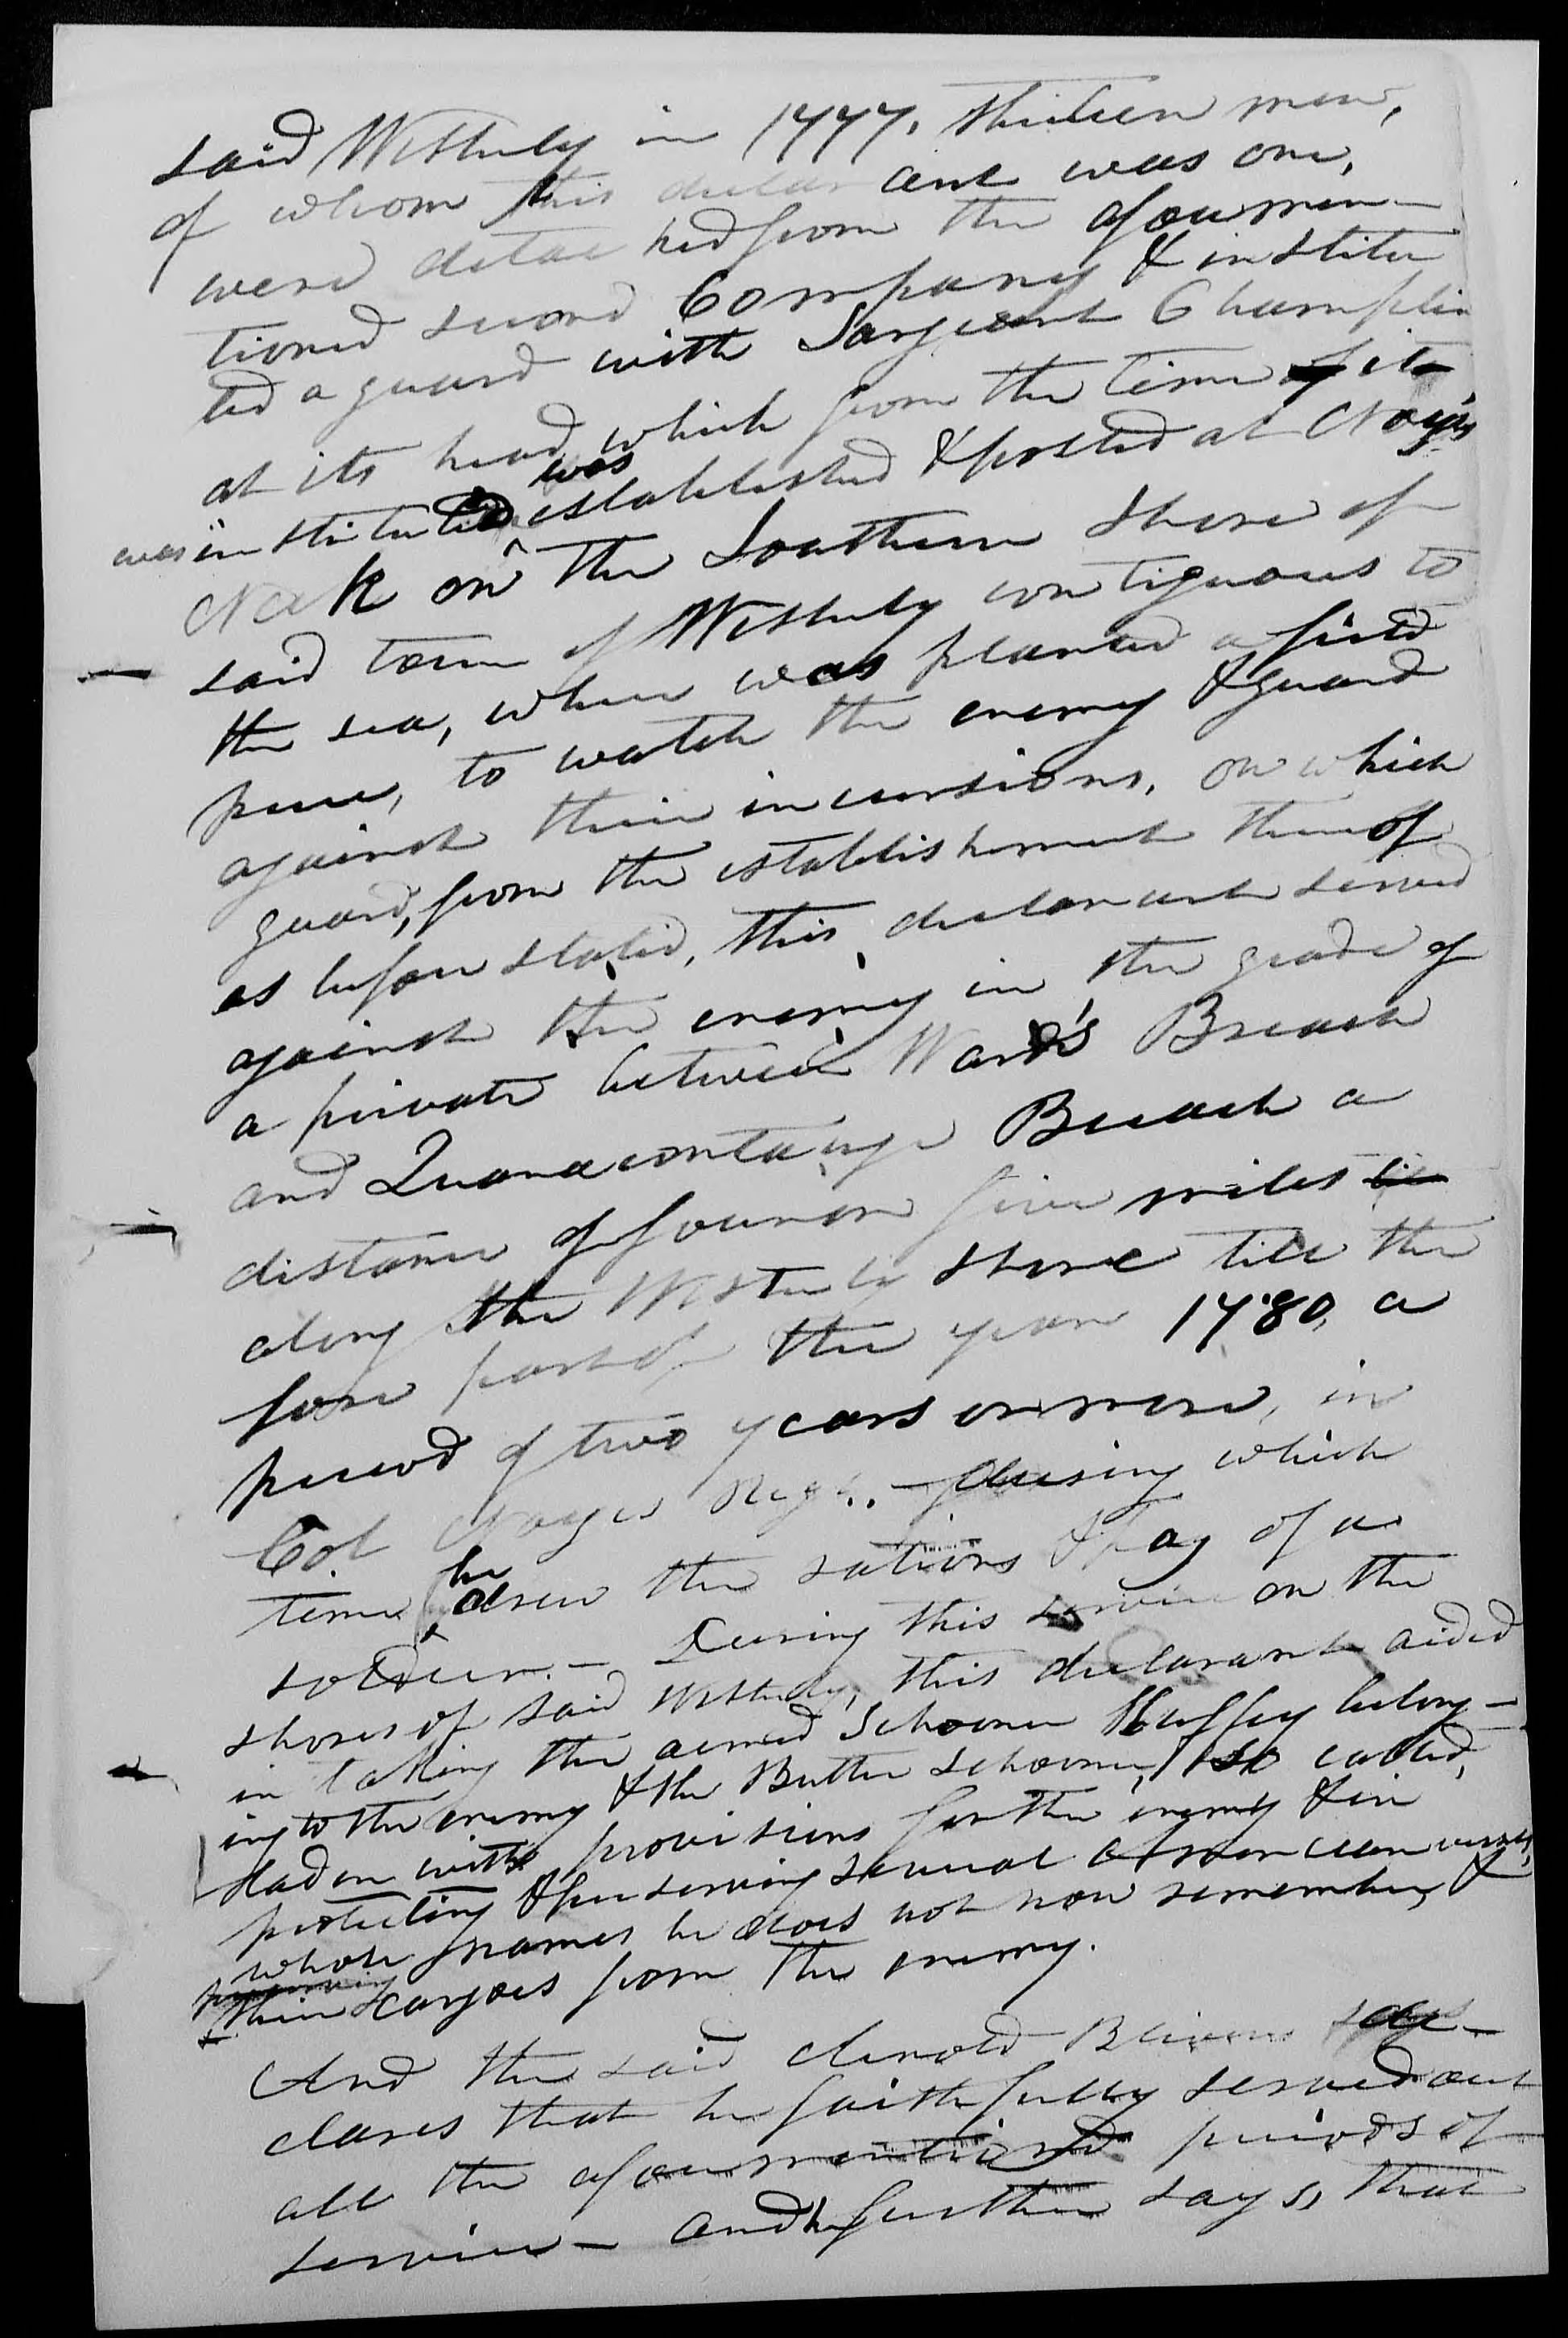 said Westerly in 1777, thirteen men,
of whom this declarant was one,
were detached from the aforemen-
tioned second Company & institu
ted a guard with Sargeant Champlin
at its head, which from the time of it
was instituted was established & posted at Noyes
Neck on the Southern Shore of
said town of Westerly contiguous to
the sea, where was planted a field
piece, to watch the enemy & guard
against their incursions, on which
guard, from the establishment thereof
as before stated, this declarant served
against the enemy in the grade of
a private between Ward's Breach
and Quonacontauge Breach a
distance of four or five miles
along the Westerly shore till the
fore part of the year 1780, a
period of two years or more, in
Col Noyes Regt. - during which
time he drew the rations & pay of a
soldier. - During this service on the
shores of said Westerly, this declarant aided
in taking the armed Schooner Huffey belong-
ing to the enemy & the Butter Schooner, so called,
laden with provisions for the enemy & in
protecting & preserving several American vessels,
whose names he does not now remember, &
their cargoes from the enemy.
And the said Arnold Blivens de-
clares that he faithfully served out
all the aforementioned periods of
service - and he further says, that